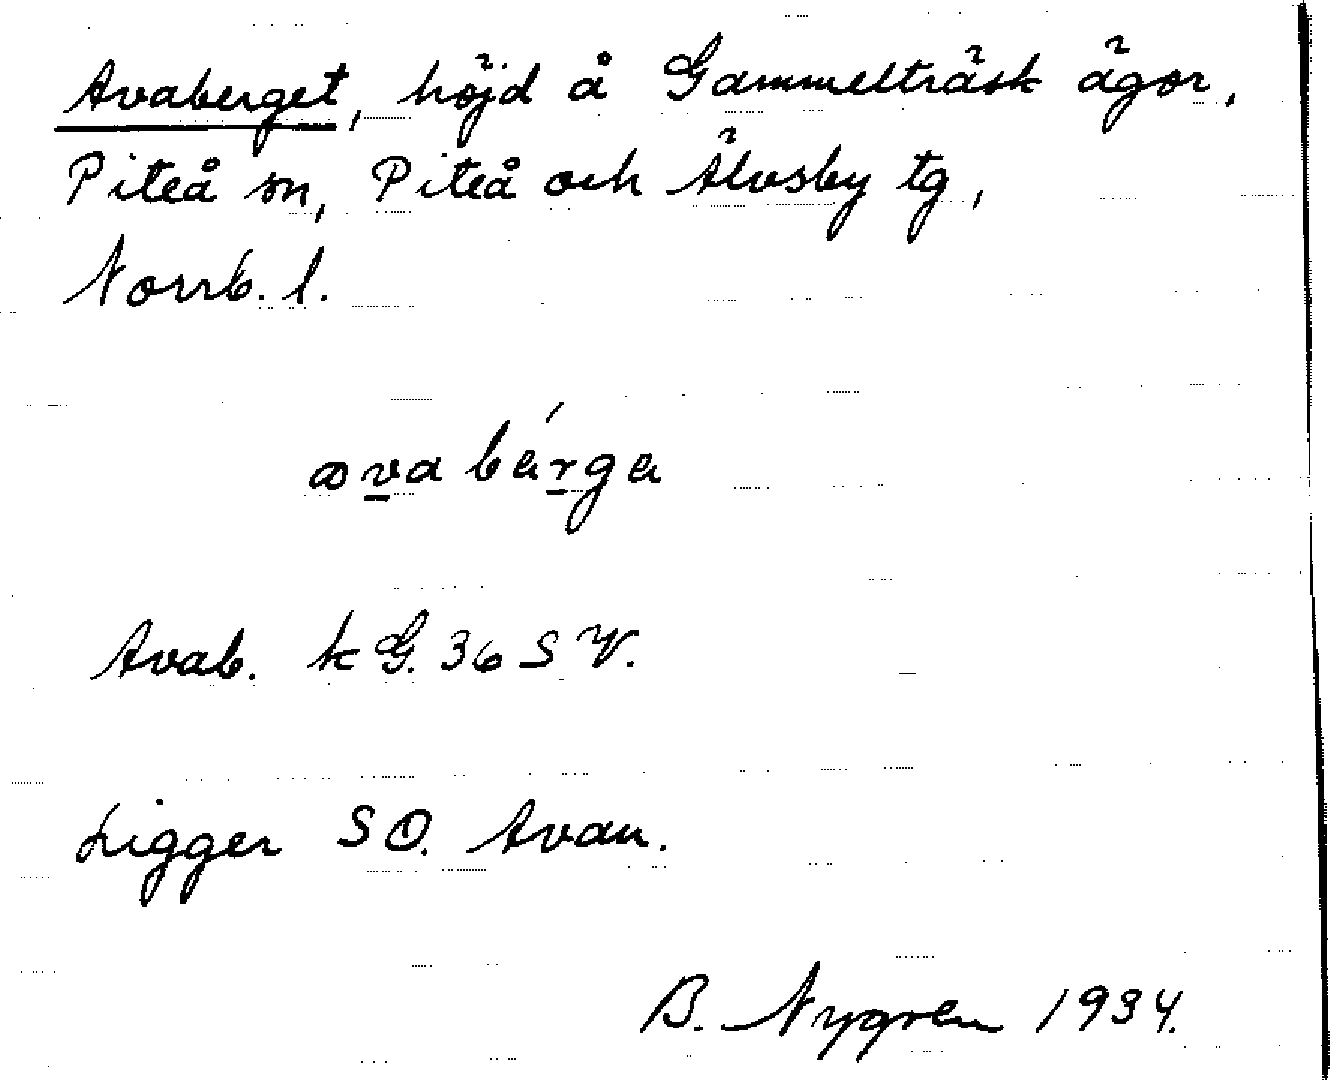 Avaberget, höjd å Gammelträsk ägor,
Piteå sn, Piteå och Älvsby tg,
Norrb. l.
ava bärga
Avab. kG. 36 S V.
Ligger SO. Avan.
B. Nygren 1934.